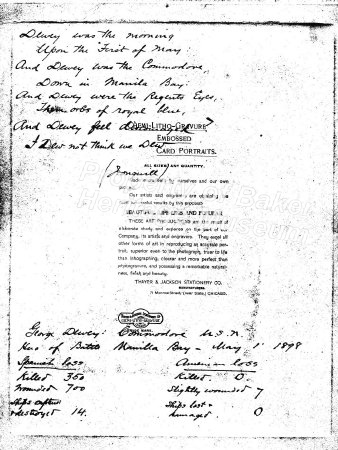 Dewey was the morning
Upon the First of May.
And Dewey was the Commodore,
Down in Manila Bay.
And Dewey were the Regents Eyes,
Them orbs of royal blue,
And Dewey feel
CHEMI-LITHO-GRAVURE
EMBOSSED
I Dew not think we Dew
CARD PORTRAITS.
ALL SIZES ANY QUANTITY.
by ourselves and our own
Our artists and
results by this process
THESE ART are the result of
elaborate study and expense on the part of our
Company, its artists and engravers. They excel all
other forms of art in reproducing an accurate por-
trait, superior even to the photograph, truer to life
than lithographing, clearer and more perfect than
photogravure, and possessing a remarkable natural-
ness, finish and beauty.
THAYER & JACKSON STATIONERY CO.
MANUFACTURERS.
71 Monroe Street, (near State,) CHICAGO.
George Dewey: Commodore U.S.N.
Hero of Battle Manilla Bay - May 1 1898
Spanish loss
American loss
Killed 350
Killed 0.
Wounded 700
Slightly wounded 7
Ships
destroyed 14.
Ships lost &
damaged 0